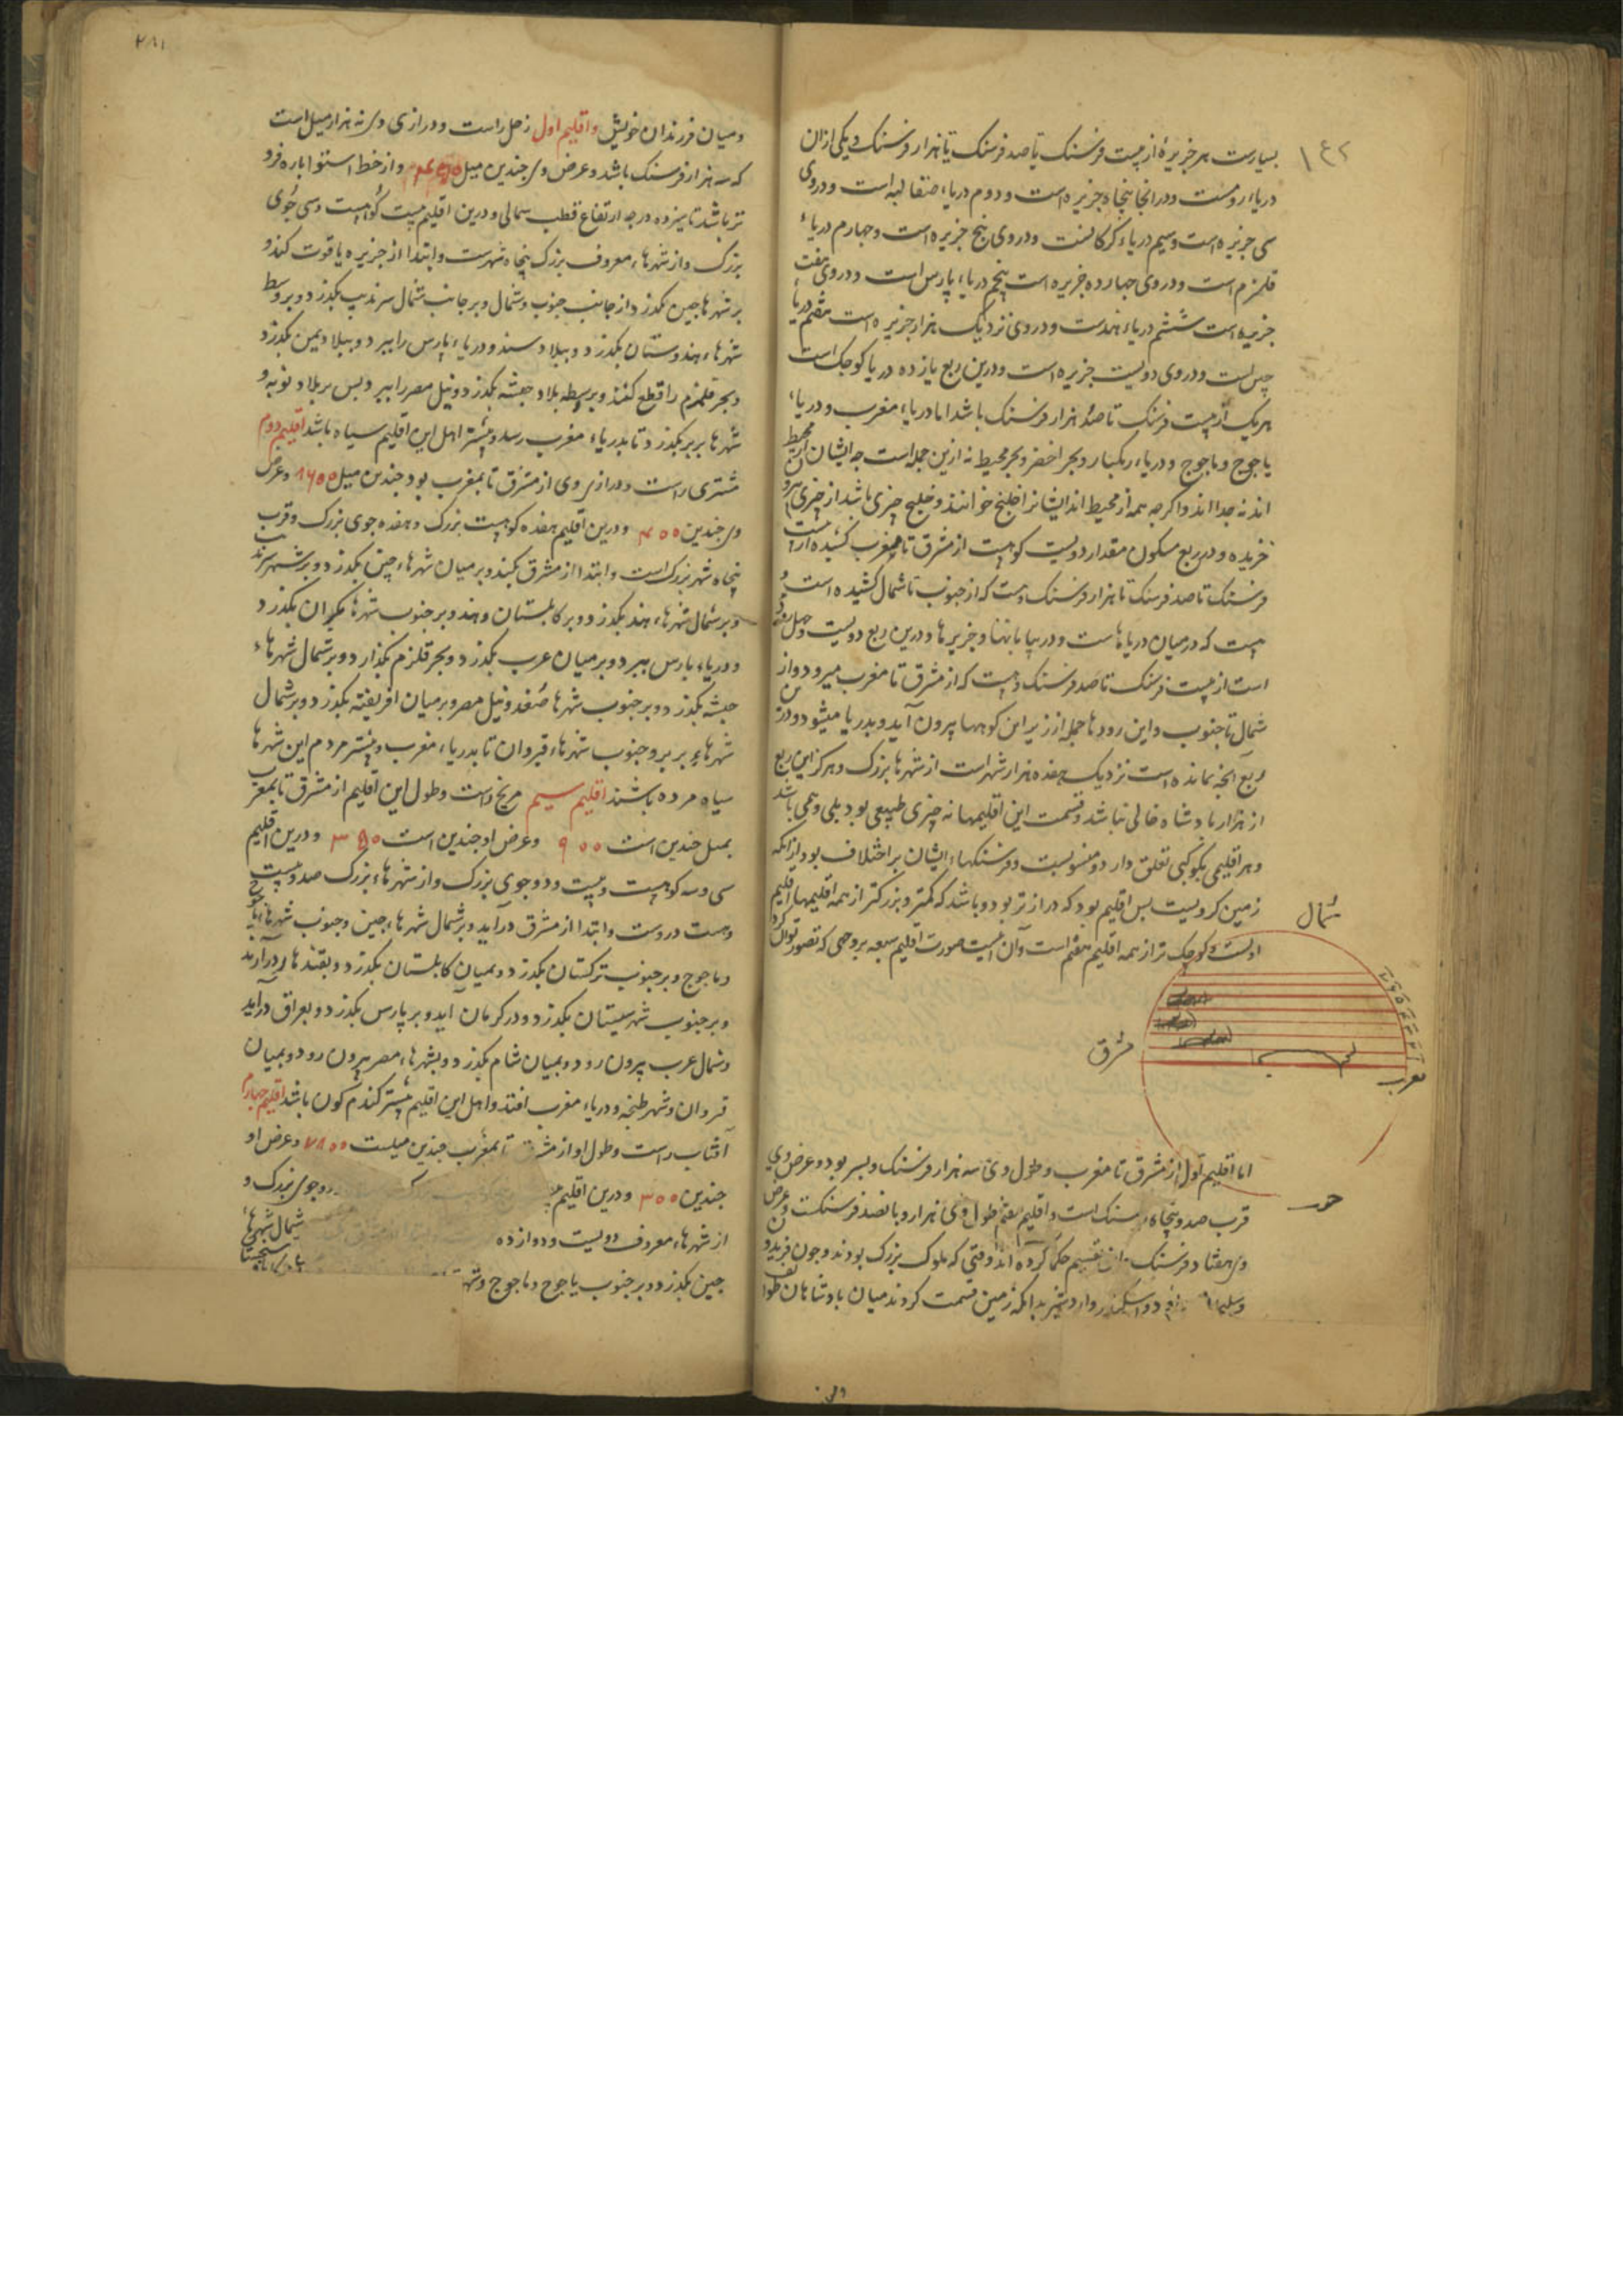 بسیارست هر جزیرهٔ از بیست فرسنک تا صد فرسنک تا هزار فرسنک و یکی ازان
دریاء روست و در انجا پنجاه جزیره است و دوم دریاء صقالبه است و دروی
سی جزیره است و سیم دریاء کرکانست و دروی پنج جزیره است و جهارم دریاء
قلزم است و دروی جهارده جزیره است پنجم دریاء پارس است و دروی هفت
جزیره است ششم دریاء هندست و دروی نزدیک هزار جزیره است هفتم دریاء
چین است و دروی دویست جزیره است و درین ربع یازده دریا کوجک است
هر یک از بیست فرسنک تا صد هزار فرسنک باشد اما دریاء مغرب و دریاء
یاجوج و ماجوج و دریاء زنکبار و بحر اخضر و بحر محیط نه ازین جمله است جه ایشان از محیط
اند نه جدا اند و اکرجه همه از محیط اند ایشانرا خلیج خوانند و خلیج جیزی باشد از جیزی
و در ربع مسکون مقدار دویست کوهست از مشرق تا مغرب کشیده از بیست
فرسنک تا صد فرسنک تا هزار فرسنک و هست که از جنوب تا شمال کشیده است و
هست که در میان دریاهاست و در بیابانها و جزیرها و درین ربع دویست و جهل رود
است از بیست فرسنک تا صد فرسنک و هست که از مشرق تا مغرب میرود و از
شمال تا جنوب و این رودها جمله از زیر این کوهها بیرون آید و بدریا میشود و درین
ربع انجه بمانده است نزدیک هفده هزار شهر است از شهرها بزرک و هرکز این ربع
از هزار بادشاه خالی نباشد و قسمت این اقلیمها نه جیزی طبیعی بود بلی وهمی باشد
و هر اقلیمی بکوکبی تعلق دارد و منسوبست و فرسنکهاء ایشان بر اختلاف بود ازانکه
زمین کرویست بس اقلیم بود که درازتر بود و باشد که کمتر و بزرکتر از همه اقلیمها اقلیم
اولست و کوجک تر از همه اقلیم هفتم است و آن اینست صورت اقلیم سبعه بر وجهی که تصور توان کرد
شمال
مشرق
مغرب
اما اقلیم اول از مشرق تا مغرب و طول وی سه هزار فرسنک و بسر بود و عرض وی
قرب صد و پنجاه فرسنک است و اقلیم هفتم طول وی هزار و بانصد فرسنکست و عرض
وی هفتاد فرسنک و این تقسیم حکما کرده اند وقتی که ملوک بزرک بودند و جون فریدون
و اسکندر و اردشیر بدانکه زمین قسمت کردند میان بادشاهان طوایف
و میان فرزندان خویش و اقلیم اول زحل راست و درازی وی نه هزار میل است
که سه هزار فرسنک باشد و عرض وی جندین میل و از خط استوا باره فرو
تر باشد تا سیزده درجه ارتفاع قطب شمالی و درین اقلیم بیست کوهست و سی جوی
بزرک و از شهرهاء معروف بزرک پنجاه شهرست و ابتدا از جزیره یاقوت کند و
بر شهرها جین بکذرد از جانب جنوب و شمال و بر جانب شمال سرندیب بکذرد و بر وسط
شهرهاء هندوستان بکذرد و ببلاد سند و دریاء پارس را ببرد و ببلاد یمن بکذرد
و بحر قلزم را قطع کند و بر وسط بلاد حبشه بکذرد و نیل مصر را ببرد و بس بر بلاد نوبه و
شهرها بربر بکذرد تا بدریاء مغرب رسد و بیشتر اهل این اقلیم سیاه باشد اقلیم دوم
مشتری راست و درازی وی از مشرق تا بمغرب بود جندین میل ۸۶۰۰ و عرض
وی جندین ۴۰۰ و درین اقلیم هفده کوهست بزرک و هفده جوی بزرک و قرب
پنجاه شهر بزرک است و ابتدا از مشرق بکند و بر میان شهرهاء چین بکذرد و بر سرندیب
و بر شمال شهرهاء هند بکذرد و بر کابلستان و هند و بر جنوب شهرها مکران بکذرد
و دریاء پارس ببرد و بر میان عرب بکذرد و بحر قلزم بکذارد و بر شمال شهرهاء
حبشه بکذرد و بر جنوب شهرها صعید و نیل مصر و بر میان افریقیه بکذرد و بر شمال
شهرهاء بربر و جنوب شهرهاء قیروان تا بدریاء مغرب و بیشتر مردم این شهرها
سیاه مرده باشند اقلیم سیم مریخ راست و طول این اقلیم از مشرق تا بمغرب
بمیل جندین است و عرض او جندین است ۳۵۰ و درین اقلیم
سی و سه کوهست و بیست و دو جوی بزرک و از شهرهاء بزرک صد و بیست
و هست دروست و ابتدا از مشرق درآید و بر شمال شهرهاء جین و جنوب شهرهاء یاجوج
و ماجوج و بر جنوب ترکستان بکذرد و بمیان کابلستان بکذرد و بقندهار درآید
و بر جنوب شهر سیستان بکذرد و در کرمان آید و بر پارس بکذرد و بعراق درآید
و شمال عرب بیرون رود و بمیان شام بکذرد و بشهرهاء مصر بیرون رود و بمیان
قیروان و شهر طنجه و دریاء مغرب افتد و اهل این اقلیم بیشتر کندم کون باشد اقلیم جهارم
آفتاب راست و طول او از مشرق تا بمغرب جندین میلست ۷۸۰۰ و عرض او
جندین ۳۰۰ و درین اقلیم رود جوی بزرک و
از شهرهاء معروف دویست و دوازده شمال شهرهاء
جین بکذرد و بر جنوب یاجوج و ماجوج و